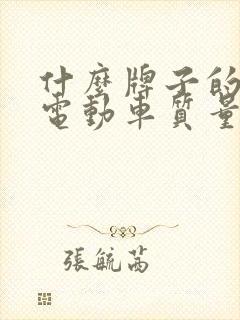 什麼牌子的
電動車質量
張毓茜